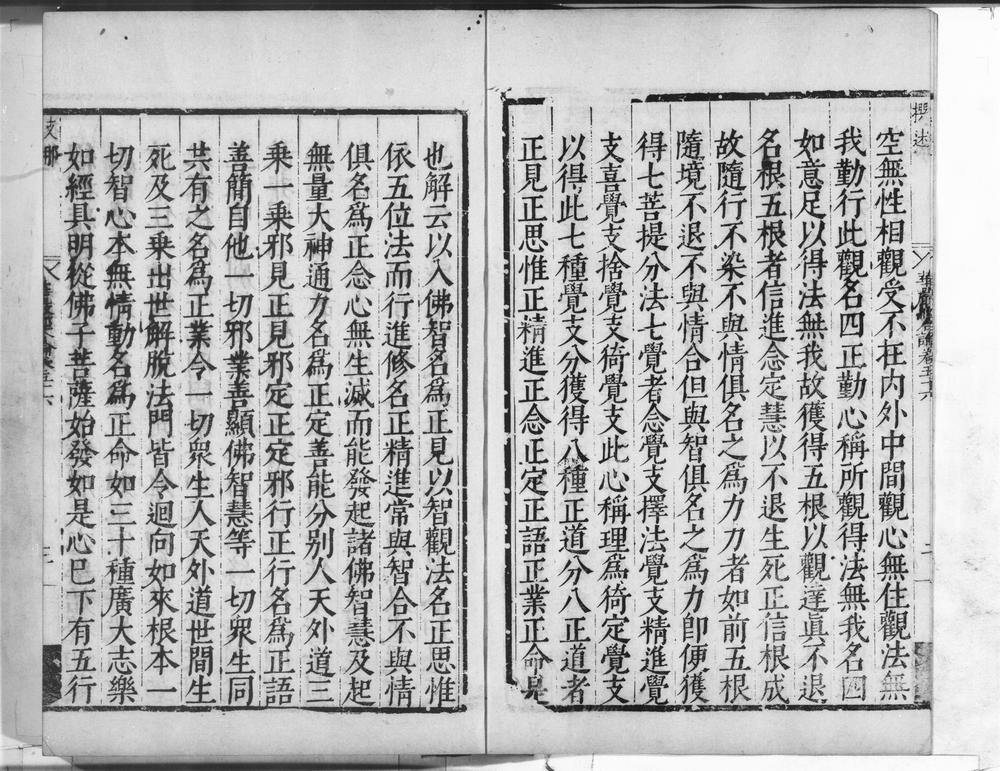 撰述
空無性相觀受不在内外中間觀心無住觀法無
我勤行此觀名四正勤心稱所觀得法無我名四
如意足以得法無我故獲得五根以觀達眞不退
名根五根者信進念定慧以不退生死正信根成
故隨行不染不與情俱名之爲力力者如前五根
隨境不退不與情合但與智俱名之爲力卽便獲
得七菩提分法七覺者念覺支擇法覺支精進覺
支喜覺支捨覺支猗覺支此心稱理爲猗定覺支
以得此七種覺支分獲得八種正道分八正道者
正見正思惟正精進正念正定正語正業正命是
也解云以入佛智名爲正見以智觀法名正思惟
依五位法而行進修名正精進常與智合不與情
俱名爲正念心無生滅而能發起諸佛智慧及起
無量大神通力名爲正定善能分别人天外道三
乘一乘邪見正見邪定正定邪行正行名爲正語
善簡自他一切邪業善顯佛智慧等一切衆生同
共有之名爲正業令一切衆生人天外道世間生
死及三乘出世解脫法門皆令迴向如來根本一
切智心本無情動名爲正命如三十種廣大志樂
如經具明從佛子菩薩始發如是心已下有五行
支那